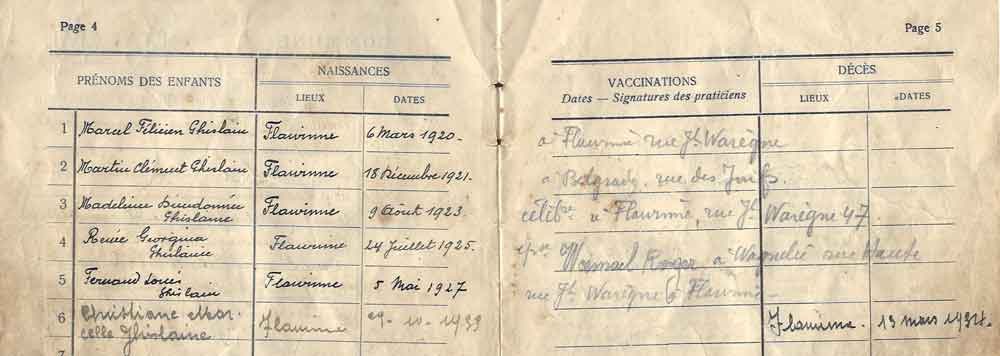 Page 4
PRÉNOMS DES ENFANTS
NAISSANCES
LIEUX
DATES
1 Marcel Félicien Ghislain Flawinne 6 Mars 1920.
2 Martin Clément Ghislain Flawinne 18 Décembre 1921.
3 Madeleine Dieudonnée Flawinne 9 Août 1923.
Ghislaine
4 Renée Georgina Flawinne 24 Juillet 1925.
Ghislaine
5 Fernand Louis Flawinne 5 Mai 1927
Ghislain
6 Christiane Mar- Flawinne 10 - 1933
celle Ghislaine
7
Page 5
VACCINATIONS
Dates — Signatures des praticiens
DÉCÈS
LIEUX
DATES
à Flawinne rue Jh Warègne
à Belgrade, rue des Juifs.
célibre à Flawinne, rue Jh Warègne 47.
épse Roger à rue Haute
rue Jh Warègne à Flawinne
Flawinne. 13 mars